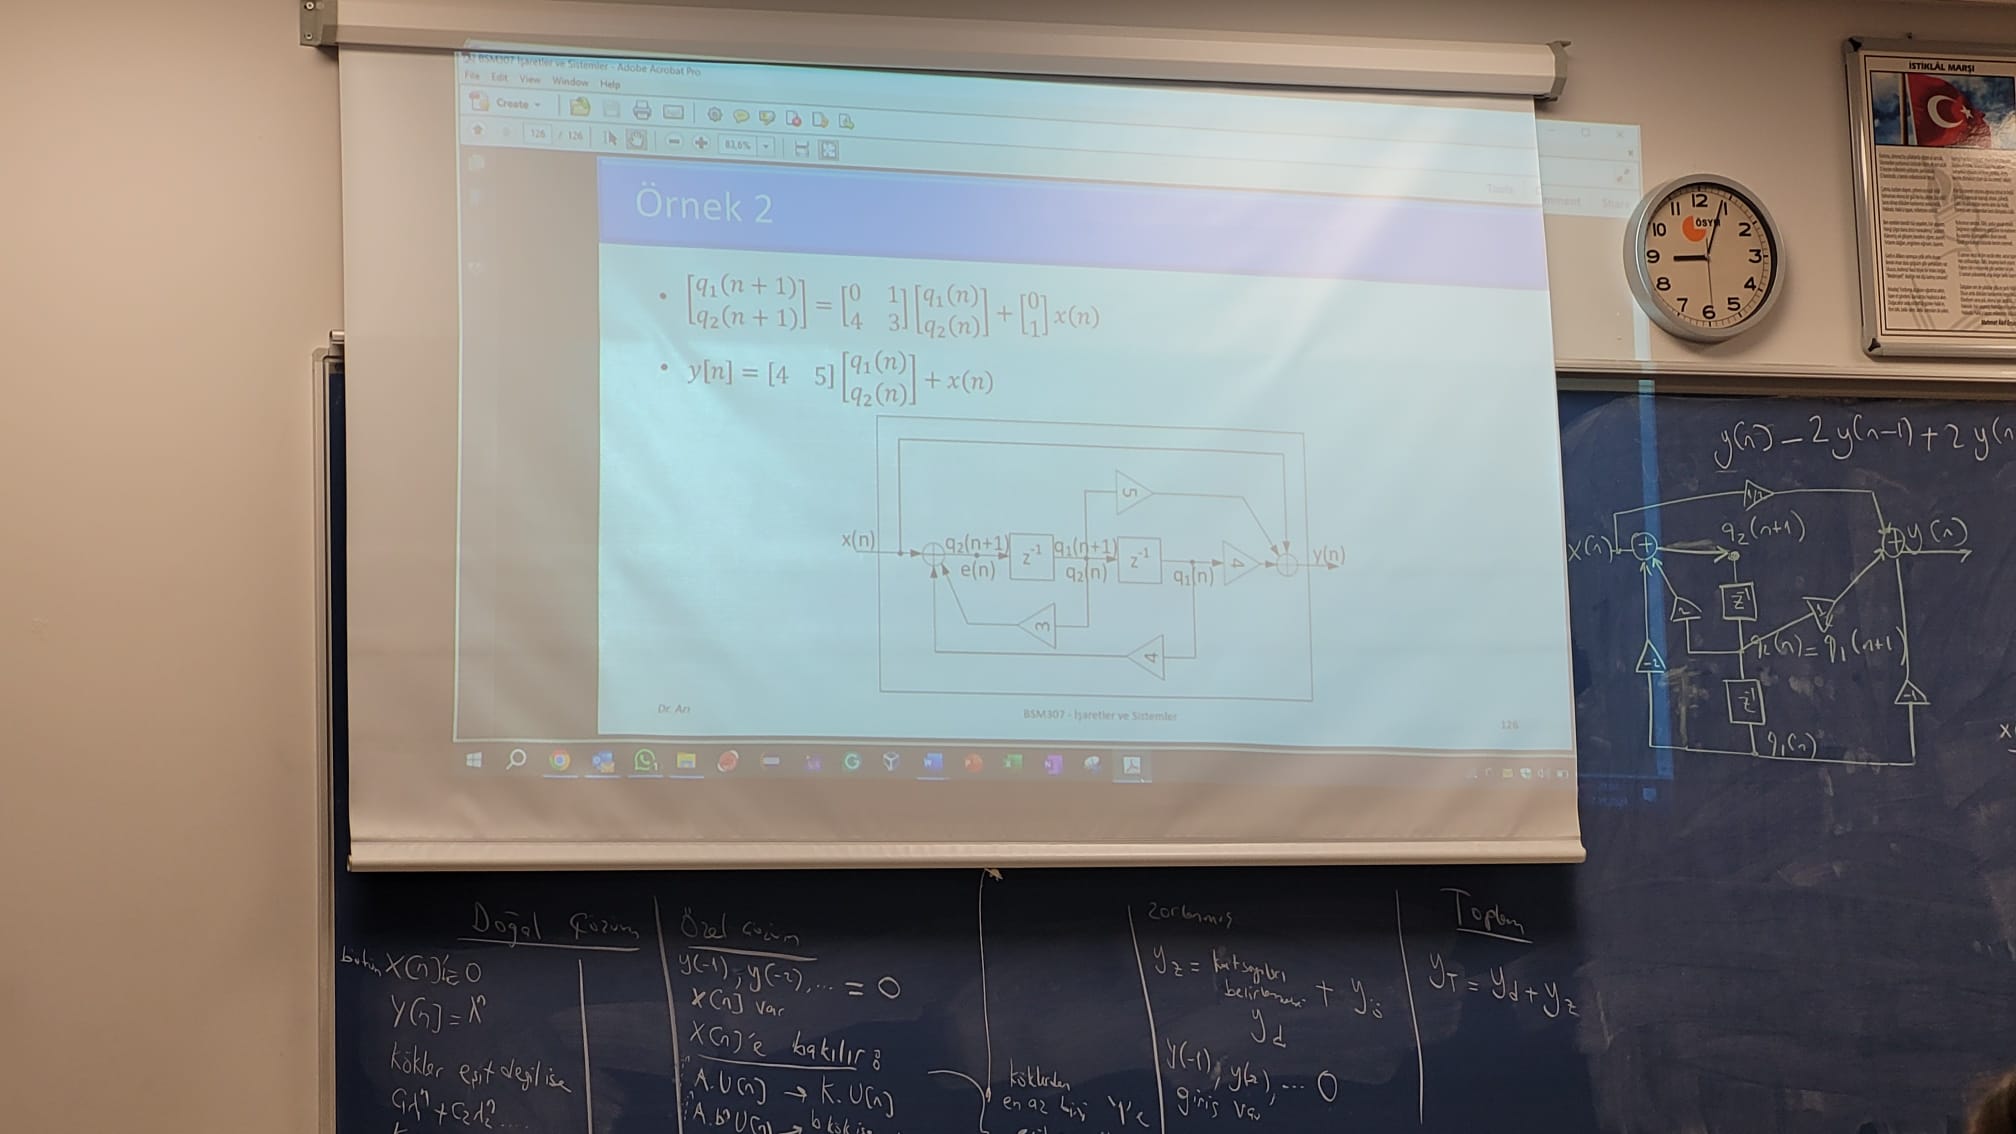 BSM307 İşaretler ve Sistemler - Adobe Acrobat Pro
File Edit View Window Help
Create
126 / 126
83,6%
Tools
Share
Örnek 2
• [q₁(n + 1)] = [0 1] [q₁(n)] + [0] x(n)
[q₂(n + 1)] [4 3] [q₂(n)] [1]
• y[n] = [4 5] [q₁(n)] + x(n)
[q₂(n)]
5
x(n) q₂(n+1) z⁻¹ q₁(n+1) z⁻¹ y(n)
e(n) q₂(n) q₁(n) 4
3
4
Dr. Arı
BSM307 - İşaretler ve Sistemler
126
İSTİKLÂL MARŞI
12 1 2 3 4 5 6 7 8 9 10 11
ÖSYM
y(n) - 2y(n-1) + 2y(n
1/2
q₂(n+1)
x(n) + + y(n)
z⁻¹
2
1
q₂(n) = q₁(n+1)
-2
z⁻¹
-1
q₁(n)
x
Doğal Çözüm
bütün x(n)'i=0
y(n) = λⁿ
kökler eşit değil ise
c₁λ₁ⁿ + c₂λ₂ⁿ ....
Özel Çözüm
y(-1), y(-2), ... = 0
x[n] var
x(n)'e bakılır:
A.U(n) → K.U(n)
A.bⁿU(n) →
köklerden
en az biri
Zorlanmış
y_z = katsayıları
belirlenmemiş + y_ö
y_d
y(-1), y(-2), ... 0
giriş var
Toplam
y_T = y_d + y_z